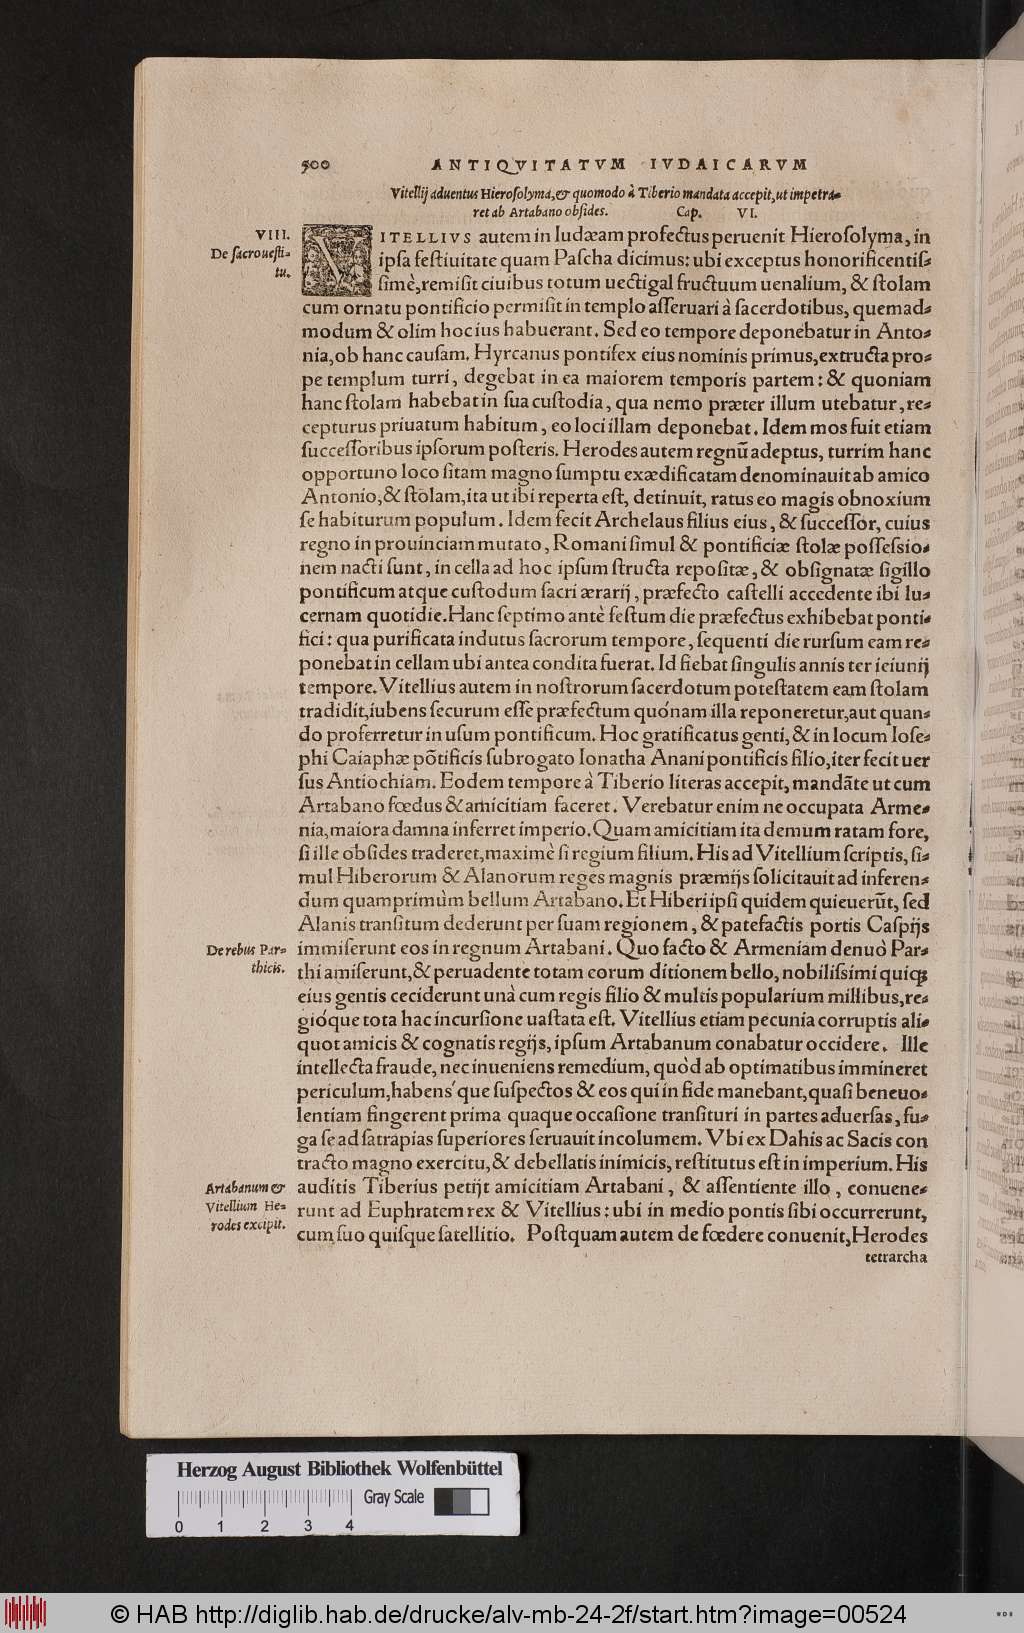 500 ANTIQVITATVM IVDAICARVM
Vitellij aduentus Hieroſolyma, & quomodo à Tiberio mandata accepit, ut impetra⸗
ret ab Artabano obſides. Cap. VI.
VIII.
De ſacro ueſti⸗
tu.
VITELLIVS autem in Iudæam profectus peruenit Hieroſolyma, in
ipſa feſtiuitate quam Paſcha dicimus: ubi exceptus honorificentiſ⸗
ſimè, remiſit ciuibus totum uectigal fructuum uenalium, & ſtolam
cum ornatu pontificio permiſit in templo aſſeruari à ſacerdotibus, quemad⸗
modum & olim hoc ius habuerant. Sed eo tempore deponebatur in Anto⸗
nia, ob hanc cauſam. Hyrcanus pontifex eius nominis primus, extructa pro⸗
pe templum turri, degebat in ea maiorem temporis partem: & quoniam
hanc ſtolam habebat in ſua cuſtodia, qua nemo præter illum utebatur, re⸗
cepturus priuatum habitum, eo loci illam deponebat. Idem mos fuit etiam
ſucceſſoribus ipſorum poſteris. Herodes autem regnũ adeptus, turrim hanc
opportuno loco ſitam magno ſumptu exædificatam denominauit ab amico
Antonio, & ſtolam, ita ut ibi reperta eſt, detinuit, ratus eo magis obnoxium
ſe habiturum populum. Idem fecit Archelaus filius eius, & ſucceſſor, cuius
regno in prouinciam mutato, Romani ſimul & pontificiæ ſtolæ poſſeſsio⸗
nem nacti ſunt, in cella ad hoc ipſum ſtructa repoſitæ, & obſignatæ ſigillo
pontificum atque cuſtodum ſacri ærarij, præfecto caſtelli accedente ibi lu⸗
cernam quotidie. Hanc ſeptimo antè feſtum die præfectus exhibebat ponti⸗
fici: qua purificata indutus ſacrorum tempore, ſequenti die rurſum eam re⸗
ponebat in cellam ubi antea condita fuerat. Id fiebat ſingulis annis ter ieiunij
tempore. Vitellius autem in noſtrorum ſacerdotum poteſtatem eam ſtolam
tradidit, iubens ſecurum eſſe præfectum quónam illa reponeretur, aut quan⸗
do proferretur in uſum pontificum. Hoc gratificatus genti, & in locum Ioſe⸗
phi Caiaphæ põtificis ſubrogato Ionatha Anani pontificis filio, iter fecit uer
ſus Antiochiam. Eodem tempore à Tiberio literas accepit, mandãte ut cum
Artabano fœdus & amicitiam faceret. Verebatur enim ne occupata Arme⸗
nia, maiora damna inferret imperio. Quam amicitiam ita demum ratam fore,
ſi ille obſides traderet, maximè ſi regium filium. His ad Vitellium ſcriptis, ſi⸗
mul Hiberorum & Alanorum reges magnis præmijs ſolicitauit ad inferen⸗
dum quamprimùm bellum Artabano. Et Hiberi ipſi quidem quieuerũt, ſed
Alanis tranſitum dederunt per ſuam regionem, & patefactis portis Caſpijs
De rebus Par⸗
thicis.
immiſerunt eos in regnum Artabani. Quo facto & Armeniam denuò Par⸗
thi amiſerunt, & peruadente totam eorum ditionem bello, nobiliſsimi quiqꝫ
eius gentis ceciderunt unà cum regis filio & multis popularium millibus, re⸗
gióque tota hac incurſione uaſtata eſt. Vitellius etiam pecunia corruptis ali⸗
quot amicis & cognatis regijs, ipſum Artabanum conabatur occidere. Ille
intellecta fraude, nec inueniens remedium, quòd ab optimatibus immineret
periculum, habens´que ſuſpectos & eos qui in fide manebant, quaſi beneuo⸗
lentiam fingerent prima quaque occaſione tranſituri in partes aduerſas, fu⸗
ga ſe ad ſatrapias ſuperiores ſeruauit incolumem. Vbi ex Dahis ac Sacis con
tracto magno exercitu, & debellatis inimicis, reſtitutus eſt in imperium. His
Artabanum &
Vitellium He⸗
rodes excipit.
auditis Tiberius petijt amicitiam Artabani, & aſſentiente illo, conuene⸗
runt ad Euphratem rex & Vitellius: ubi in medio pontis ſibi occurrerunt,
cum ſuo quiſque ſatellitio. Poſtquam autem de fœdere conuenit, Herodes
tetrarcha
Herzog August Bibliothek Wolfenbüttel
Gray Scale
0 1 2 3 4
© HAB http://diglib.hab.de/drucke/alv-mb-24-2f/start.htm?image=00524